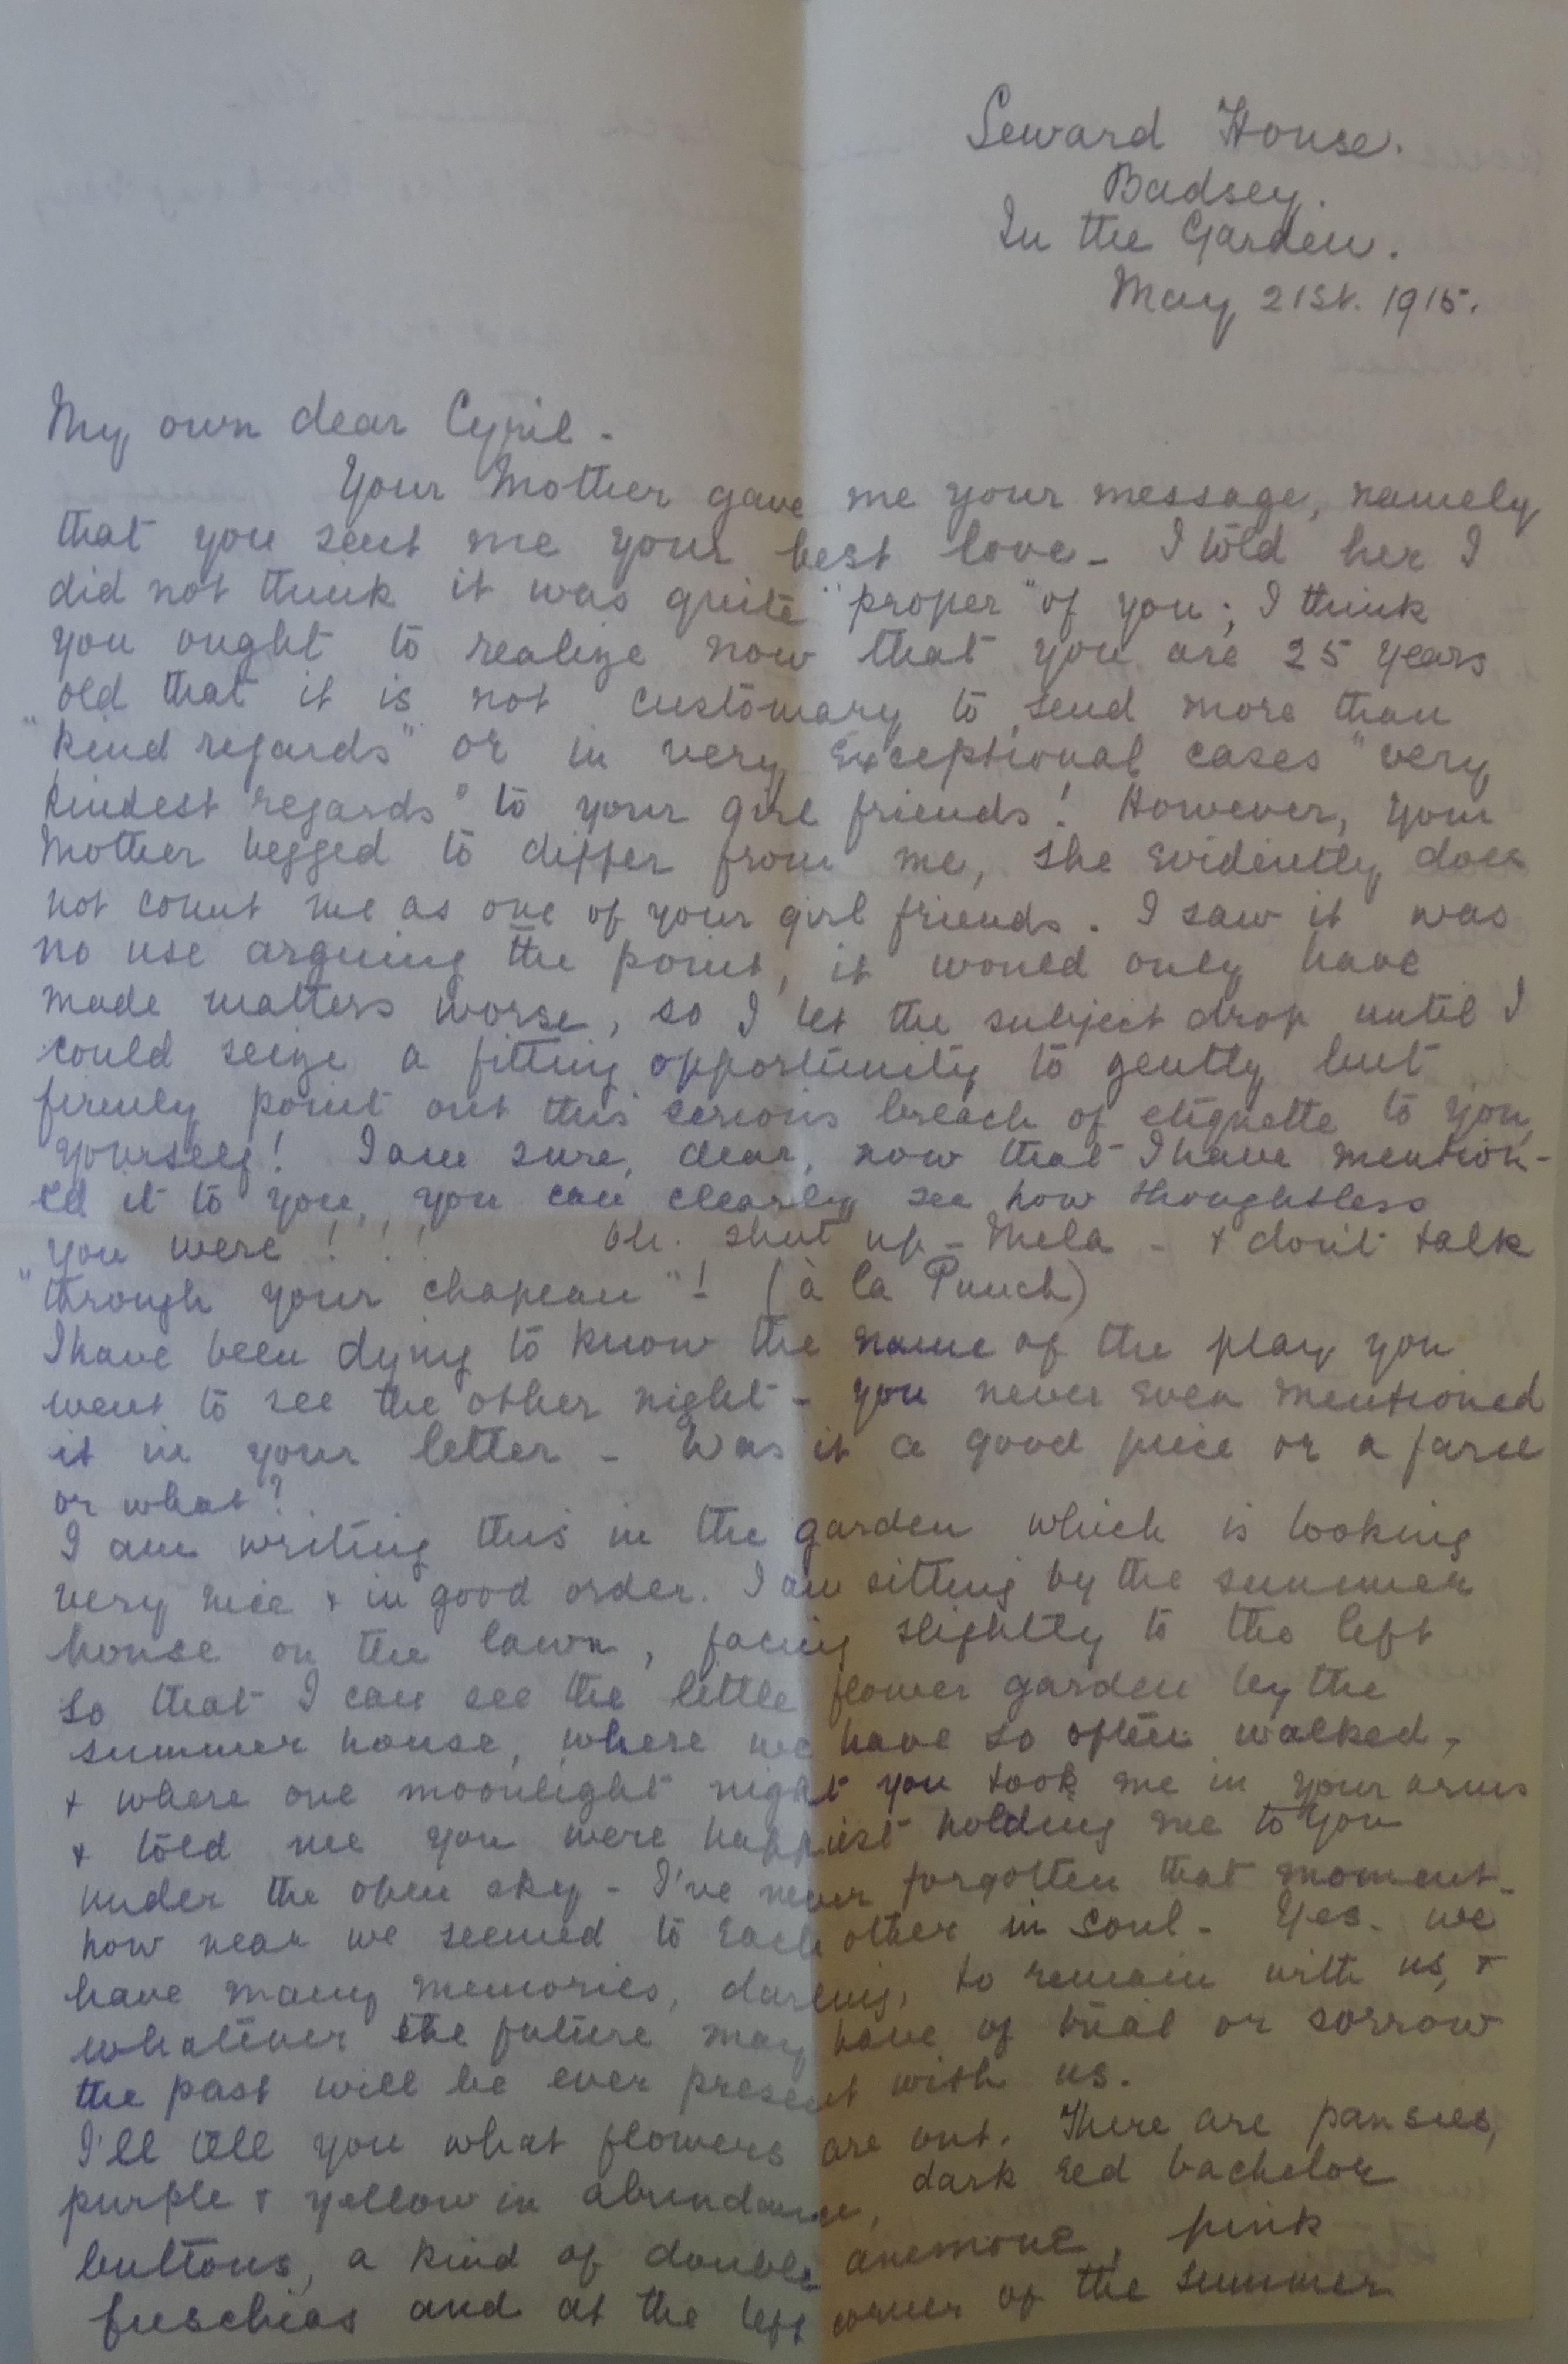 Seward House.
Badsey.
In the Garden.
May 21st. 1915.
My own dear Cyril -
Your Mother gave me your message, namely
that you sent me your best love - I told her I
did not think it was quite "proper" of you; I think
you ought to realize now that you are 25 years
old that it is not customary to send more than
"kind regards" or in very exceptional cases "very
kindest regards" to your girl friends! However, your
Mother begged to differ from me, she evidently does
not count me as one of your girl friends. I saw it was
no use arguing the point, it would only have
made matters worse, so I let the subject drop until I
could seize a fitting opportunity to gently but
firmly point out this serious breach of etiquette to you
yourself! I am sure, dear, now that I have mention-
ed it to you, you can clearly see how thoughtless
you were ! ! ! Oh. shut up - Mela - & don't talk
"through your chapeau"! (à la Punch)
I have been dying to know the name of the play you
went to see the other night - you never even mentioned
it in your letter - Was it a good piece or a farce
or what?
I am writing this in the garden which is looking
very nice & in good order. I am sitting by the summer
house on the lawn, facing slightly to the left
so that I can see the little flower garden by the
summer house, where we have so often walked,
& where one moonlight night you took me in your arms
& told me you were happiest holding me to you
under the open sky - I've never forgotten that moment -
how near we seemed to each other in soul - Yes - we
have many memories, darling, to remain with us, &
whatever the future may have of trial or sorrow
the past will be ever present with us.
I'll tell you what flowers are out. There are pansies,
purple & yellow in abundance, dark red bachelor
buttons, a kind of double anemone, pink
fuschias and at the left corner of the summer